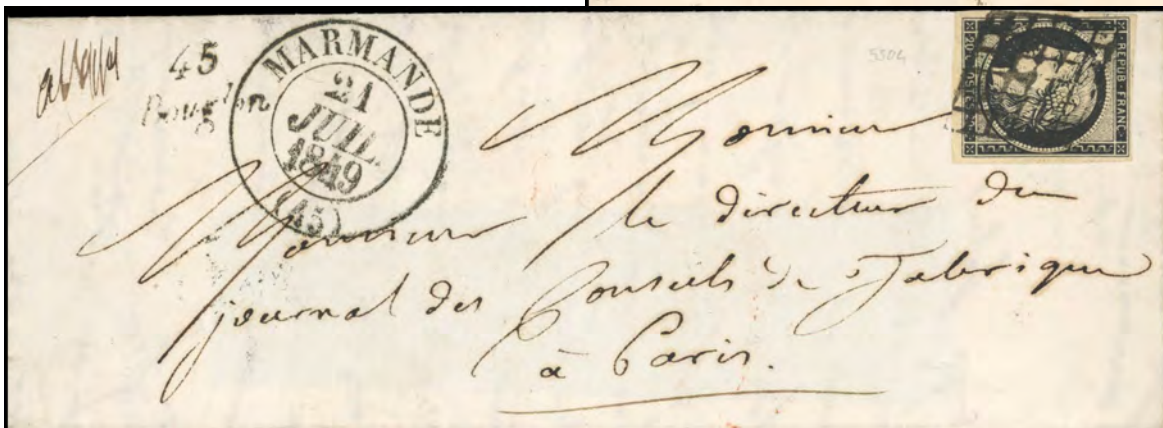 45
Bouglon
MARMANDE
21
JUIL.
1849
(45)
5504
REPUB. FRANC.
Monsieur
Monsieur le directeur du
journal des Conseils de Fabrique
à Paris.